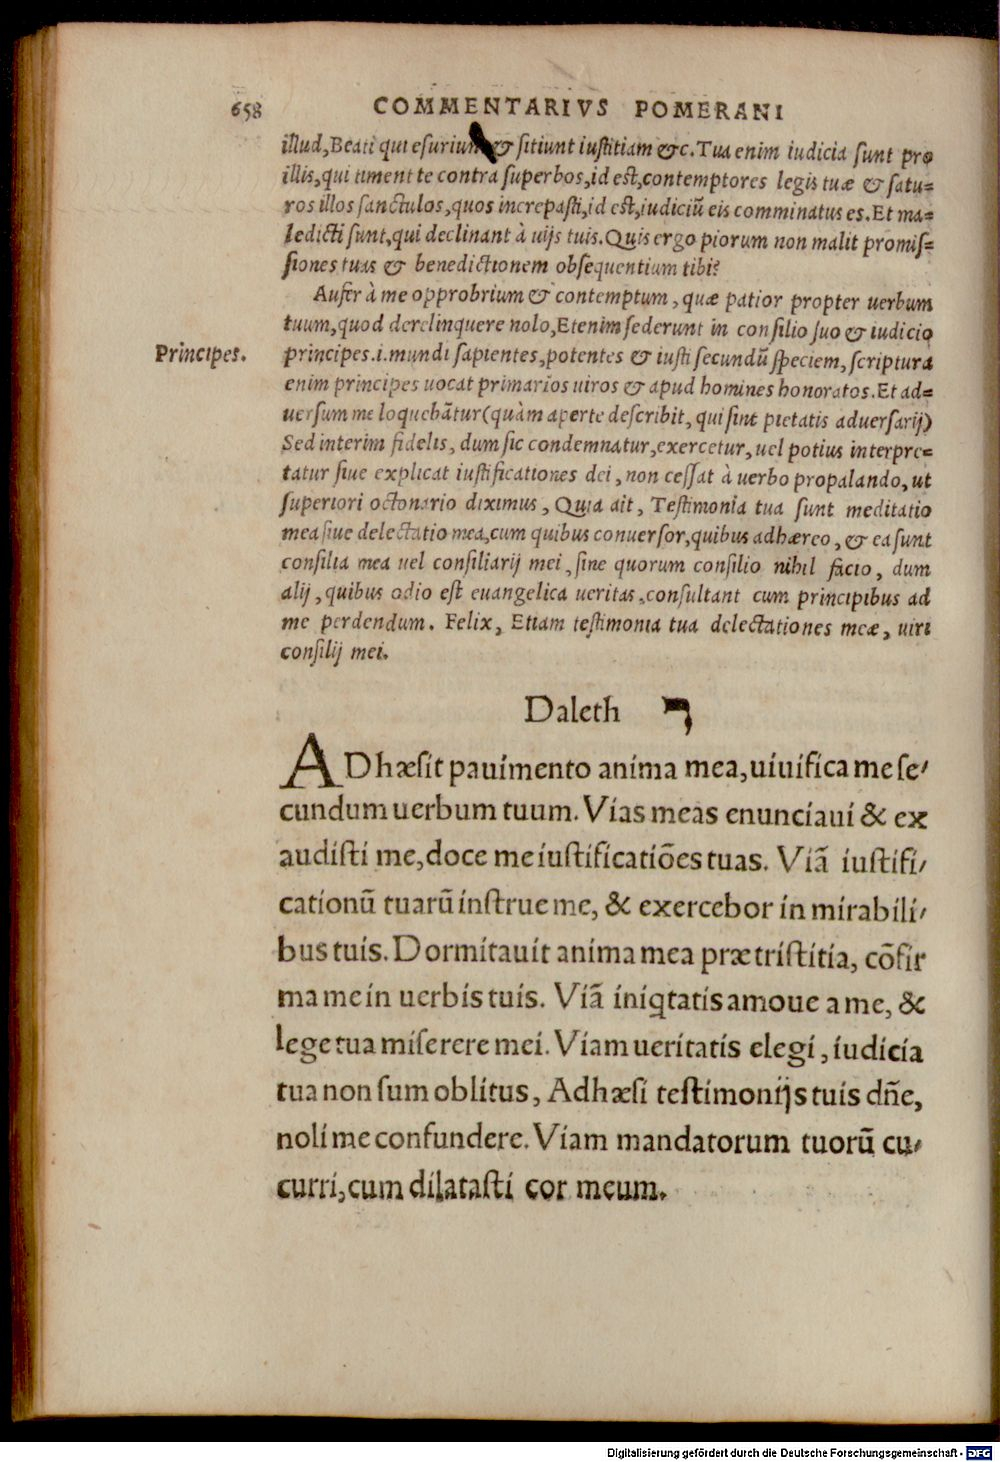 658 COMMENTARIVS POMERANI
illud, Beati qui esuriunt & sitiunt iustitiam &c. Tua enim iudicia sunt pro
illis, qui timent te contra superbos, id est, contemptores legis tuæ & satu=
ros illos sanctulos, quos increpasti, id est, iudiciũ eis comminatus es. Et ma=
ledicti sunt, qui declinant à uijs tuis. Quis ergo piorum non malit promis=
siones tuas & benedictionem obsequentium tibi?
Aufer à me opprobrium & contemptum, quæ patior propter uerbum
tuum, quod derelinquere nolo, Etenim sederunt in consilio suo & iudicio
Principes. principes .i. mundi sapientes, potentes & iusti secundũ speciem, scriptura
enim principes uocat primarios uiros & apud homines honoratos. Et ad=
uersum me loquebãtur (quàm aperte describit, qui sint pietatis aduersarij)
Sed interim fidelis, dum sic condemnatur, exercetur, uel potius interpre=
tatur siue explicat iustificationes dei, non cessat à uerbo propalando, ut
superiori octonario diximus, Quia ait, Testimonia tua sunt meditatio
mea siue delectatio mea, cum quibus conuersor, quibus adhæreo, & ea sunt
consilia mea uel consiliarij mei, sine quorum consilio nihil facio, dum
alij, quibus odio est euangelica ueritas, consultant cum principibus ad
me perdendum. Felix, Etiam testimonia tua delectationes meæ, uiri
consilij mei.
Daleth ד
ADhæsit pauimento anima mea, uiuifica me se/
cundum uerbum tuum. Vias meas enunciaui & ex
audisti me, doce me iustificatiões tuas. Viã iustifi/
cationũ tuarũ instrue me, & exercebor in mirabili/
bus tuis. Dormitauit anima mea præ tristitia, cõfir
ma me in uerbis tuis. Viã iniq̃tatis amoue a me, &
lege tua miserere mei. Viam ueritatis elegi, iudicia
tua non sum oblitus, Adhæsi testimonijs tuis dñe,
noli me confundere. Viam mandatorum tuorũ cu/
curri, cum dilatasti cor meum.
Digitalisierung gefördert durch die Deutsche Forschungsgemeinschaft - DFG